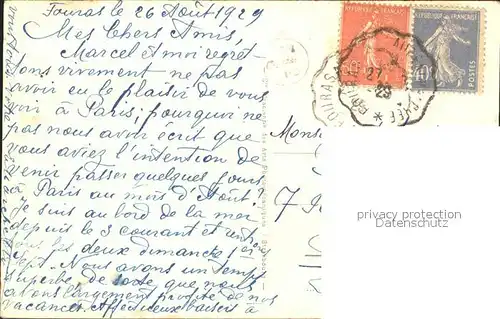 Fouras le 26 Août 1929
Mes Chers Amis,
Marcel et moi regret-
tons vivement ne pas
avoir eu le plaisir de vous
voir à Paris; pourquoi ne
pas nous avoir écrit que
vous aviez l'intention de
venir passer quelques jours
à Paris au mois d'Août?
Je suis au bord de la mer
depuis le 3 courant et rentrons
tous les deux dimanche 1er
Sept. Nous avons un temps
superbe, de sorte que nous
avons largement profité de nos
vacances. Affectueux baisers à
REPUBLIQUE FRANÇAISE
40
POSTES
FOURAS
27
29
Mons
7
privacy protection
www.delcampe.net